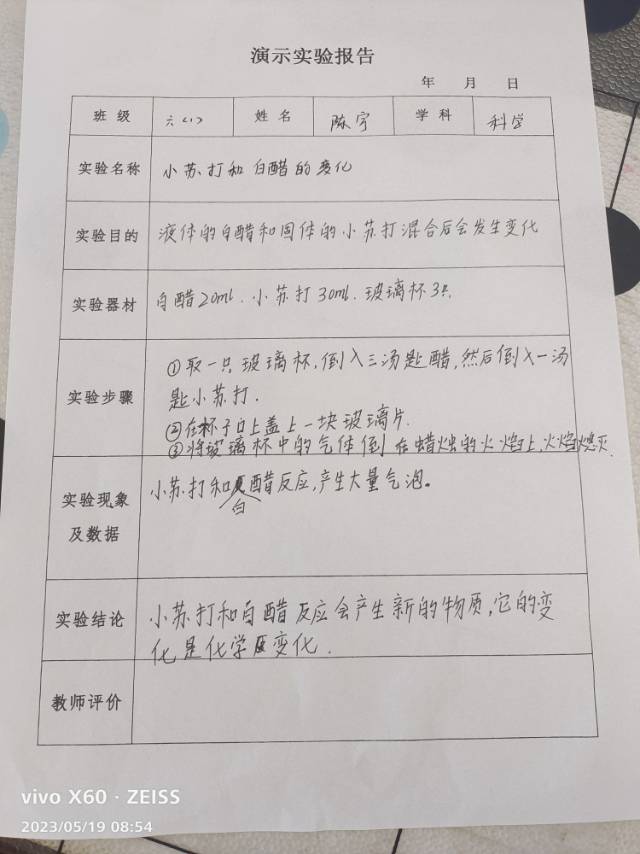 演示实验报告
年 月 日
班级 六(1) 姓名 陈宇 学科 科学
实验名称 小苏打和白醋的变化
实验目的 液体的白醋和固体的小苏打混合后会发生变化
实验器材 白醋20ml.小苏打30ml.玻璃杯3只
①取一只玻璃杯,倒入三汤匙醋,然后倒入一汤
实验步骤 匙小苏打.
②在杯子口上盖上一块玻璃片.
③将玻璃杯中的气体倒在蜡烛的火焰上,火焰熄灭.
实验现象 小苏打和白醋反应,产生大量气泡。
及数据
实验结论 小苏打和白醋反应会产生新的物质,它的变
化是化学变化.
教师评价
vivo X60 · ZEISS
2023/05/19 08:54